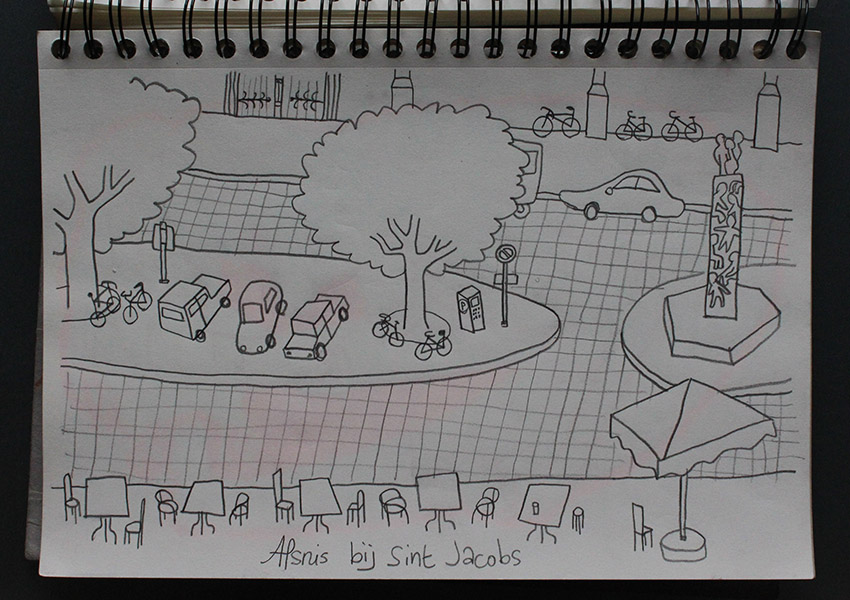 Afsnis bij Sint Jacobs